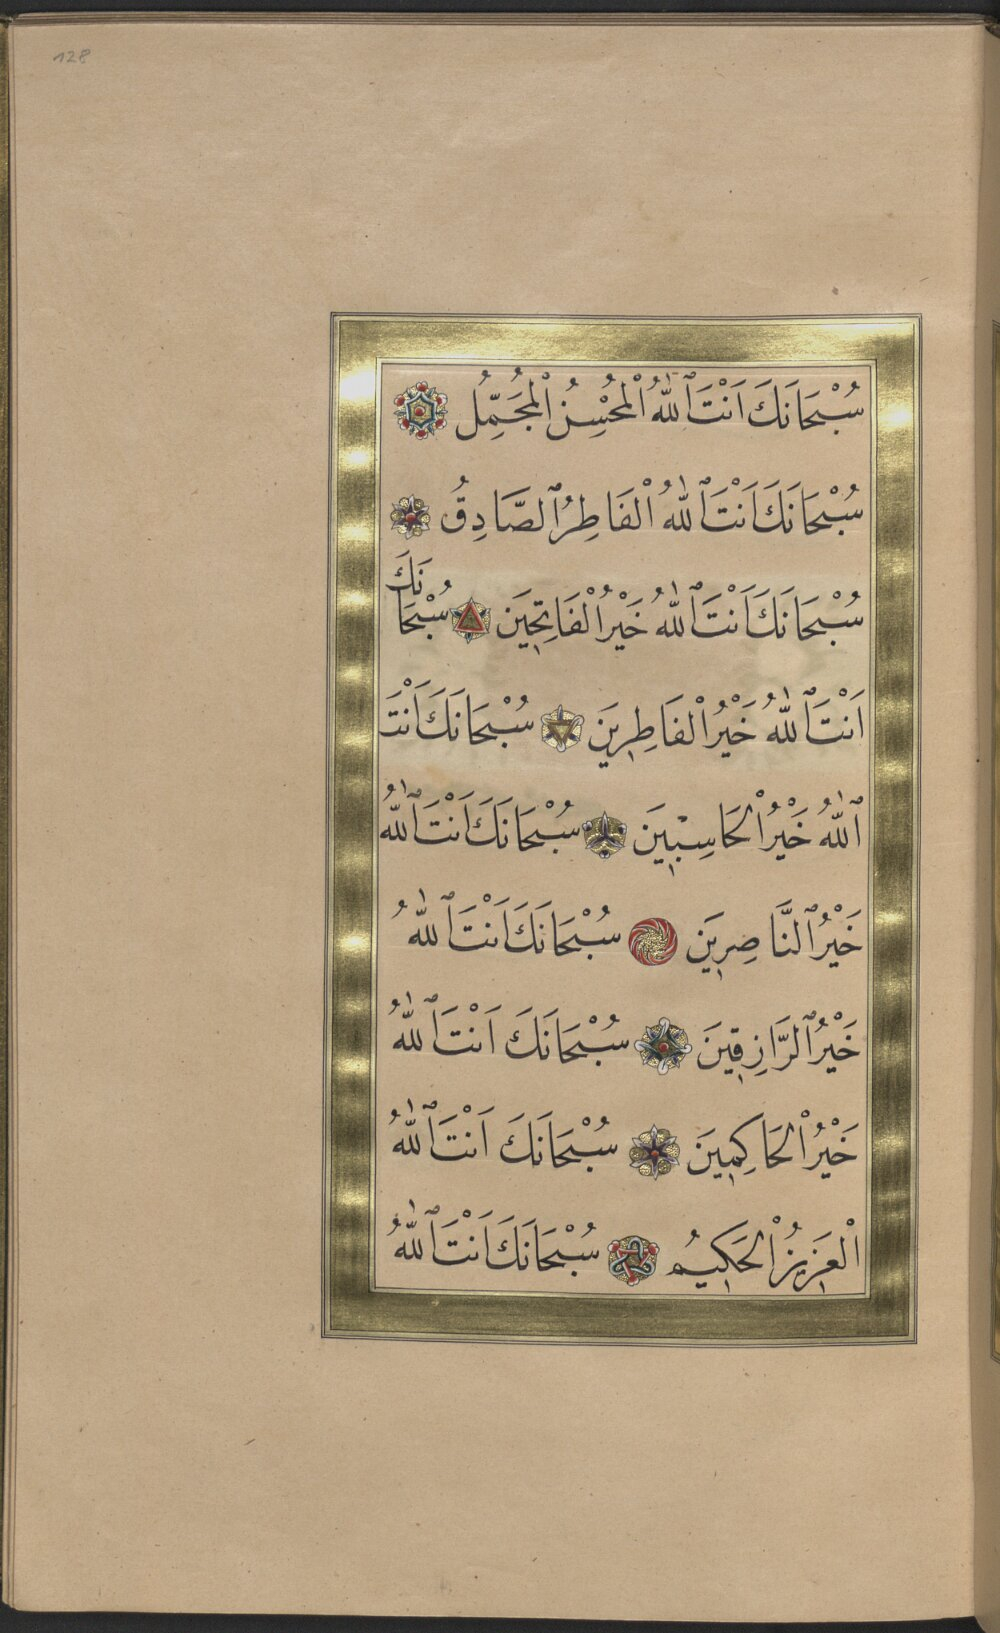 128
سُبْحَانَكَ اَنْتَ ٱللّٰهُ الْمُحْسِنُ الْمُجَمِّلُ
سُبْحَانَكَ اَنْتَ ٱللّٰهُ الْفَاطِرُ ٱلصَّادِقُ
سُبْحَانَكَ اَنْتَ ٱللّٰهُ خَيْرُ الْفَاتِحِينَ سُبْحَانَكَ
اَنْتَ ٱللّٰهُ خَيْرُ الْفَاطِرِينَ سُبْحَانَكَ اَنْتَ
ٱللّٰهُ خَيْرُ الْحَاسِبِينَ سُبْحَانَكَ اَنْتَ ٱللّٰهُ
خَيْرُ ٱلنَّاصِرِينَ سُبْحَانَكَ اَنْتَ ٱللّٰهُ
خَيْرُ ٱلرَّازِقِينَ سُبْحَانَكَ اَنْتَ ٱللّٰهُ
خَيْرُ الْحَاكِمِينَ سُبْحَانَكَ اَنْتَ ٱللّٰهُ
الْعَزِيزُ الْحَكِيمُ سُبْحَانَكَ اَنْتَ ٱللّٰهُ